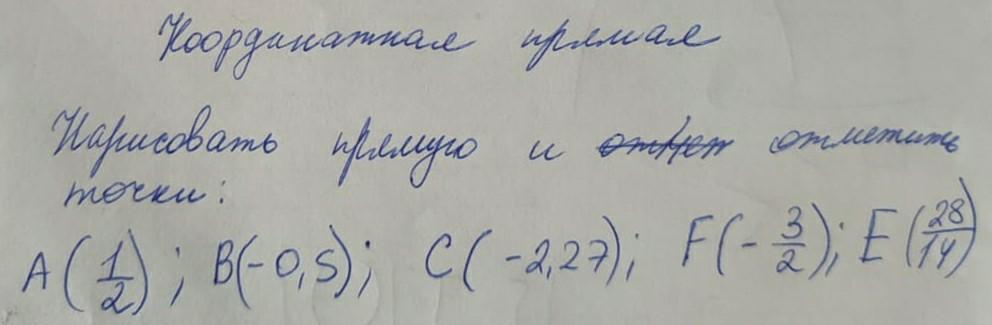 Координатная прямая
Нарисовать прямую и отметить
точки:
A(1/2); B(-0,5); C(-2,27); F(-3/2); E(28/14)